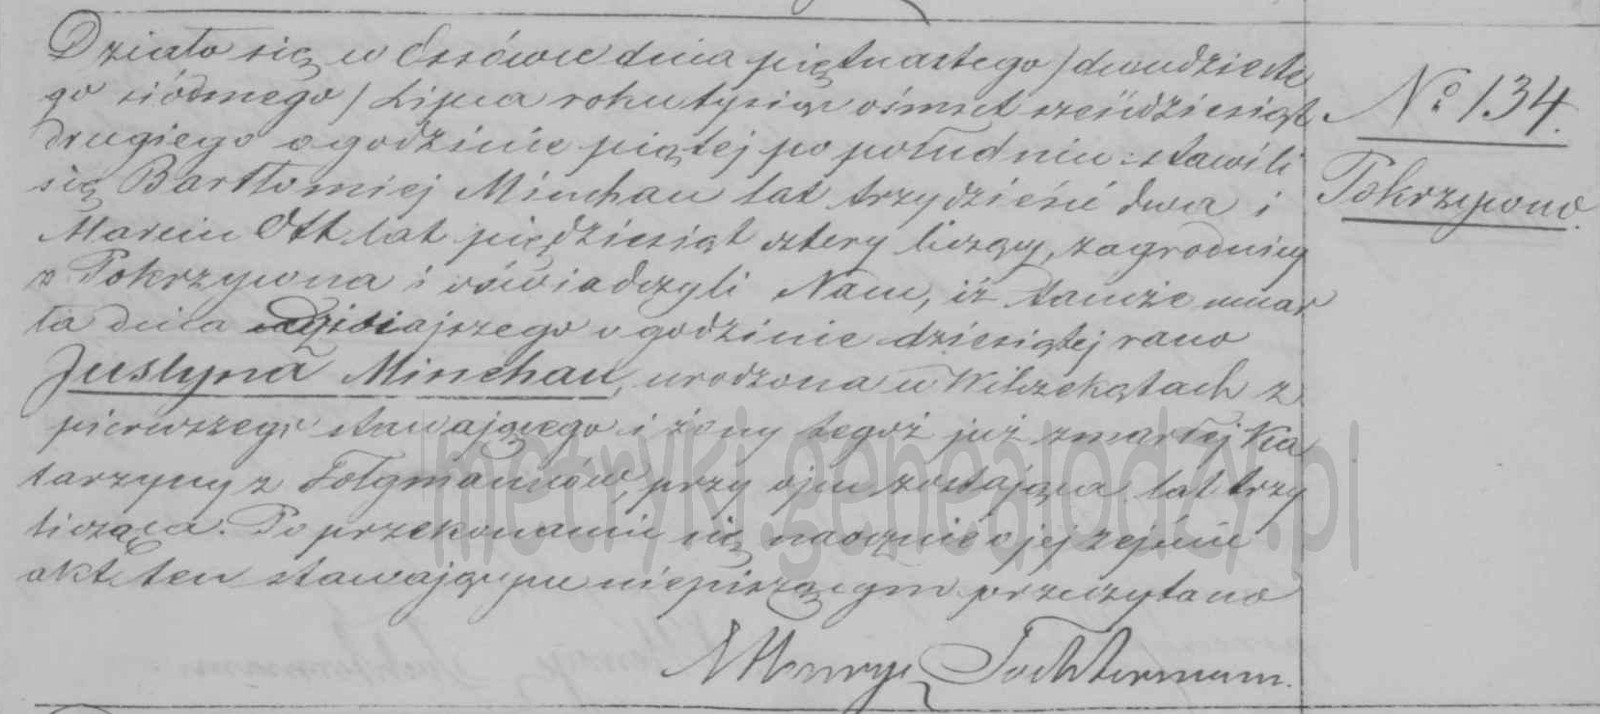 Działo się w Ossówce dnia piętnastego / dwudzieste
go siódmego / Lipca roku tysiąc ośmset sześćdziesiąt
drugiego o godzinie piątej po południu: stawili
się Bartłomiej Minchau lat trzydzieści dwa i
Marcin Ott lat pięćdziesiąt cztery liczący, zagrodnicy
z Pokrzywna i oświadczyli Nam, iż tamże umar
ła dnia dzisiajszego o godzinie dziesiątej rano
Justyna Minchau, urodzona w Wilczekątach z
pierwszego stawającego i żony tegoż już zmarłej Ka
tarzyny z Folgmannów, przy ojcu zostająca lat trzy
licząca. Po przekonaniu się naocznie o jej zejściu
akt ten stawającym niepiszącym przeczytano
No 134.
Pokrzywno.
metryki.genealodzy.pl